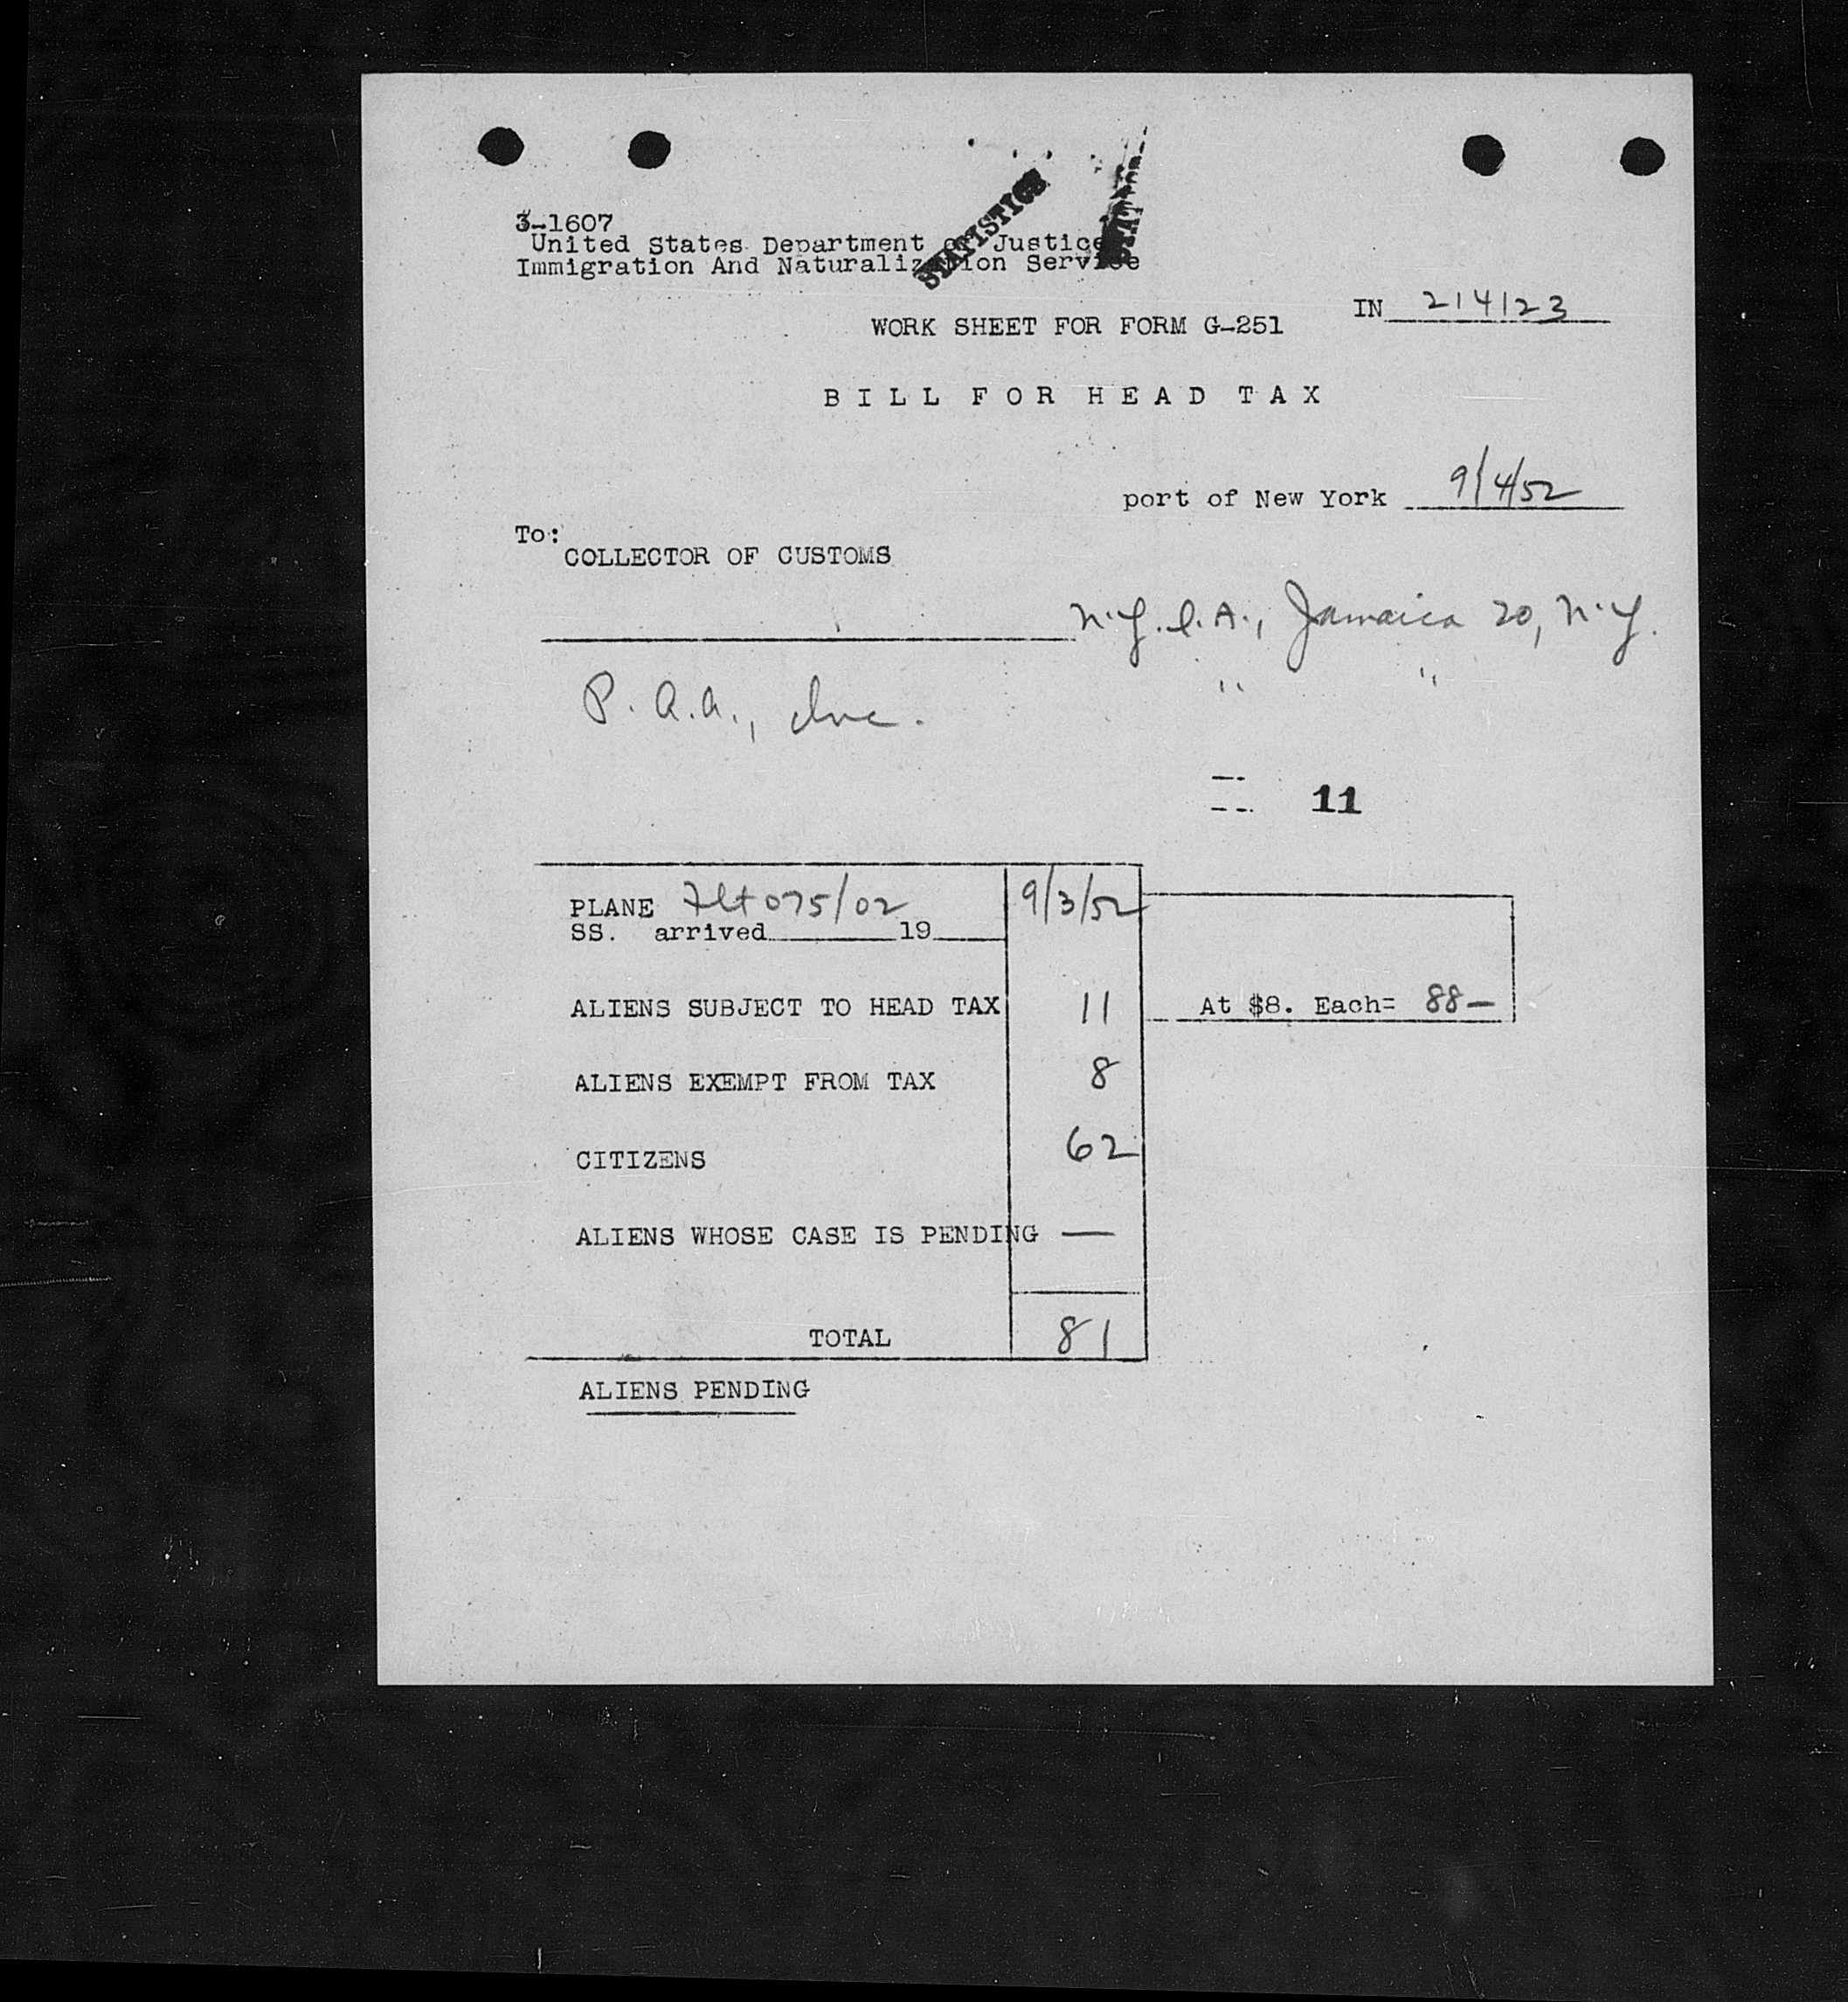 STATISTICS
3-1607
United States Department of Justice
Immigration And Naturalization Service
IN 214123
WORK SHEET FOR FORM G-251
BILL FOR HEAD TAX
port of New York 9/4/52
To:
COLLECTOR OF CUSTOMS
N.Y.I.A., Jamaica 20, N.Y.
P.A.A., Inc. " "
11
PLANE Flt 075/02 9/3/52
SS. arrived 19
ALIENS SUBJECT TO HEAD TAX 11 At $8. Each= 88—
ALIENS EXEMPT FROM TAX 8
CITIZENS 62
ALIENS WHOSE CASE IS PENDING —
TOTAL 81
ALIENS PENDING